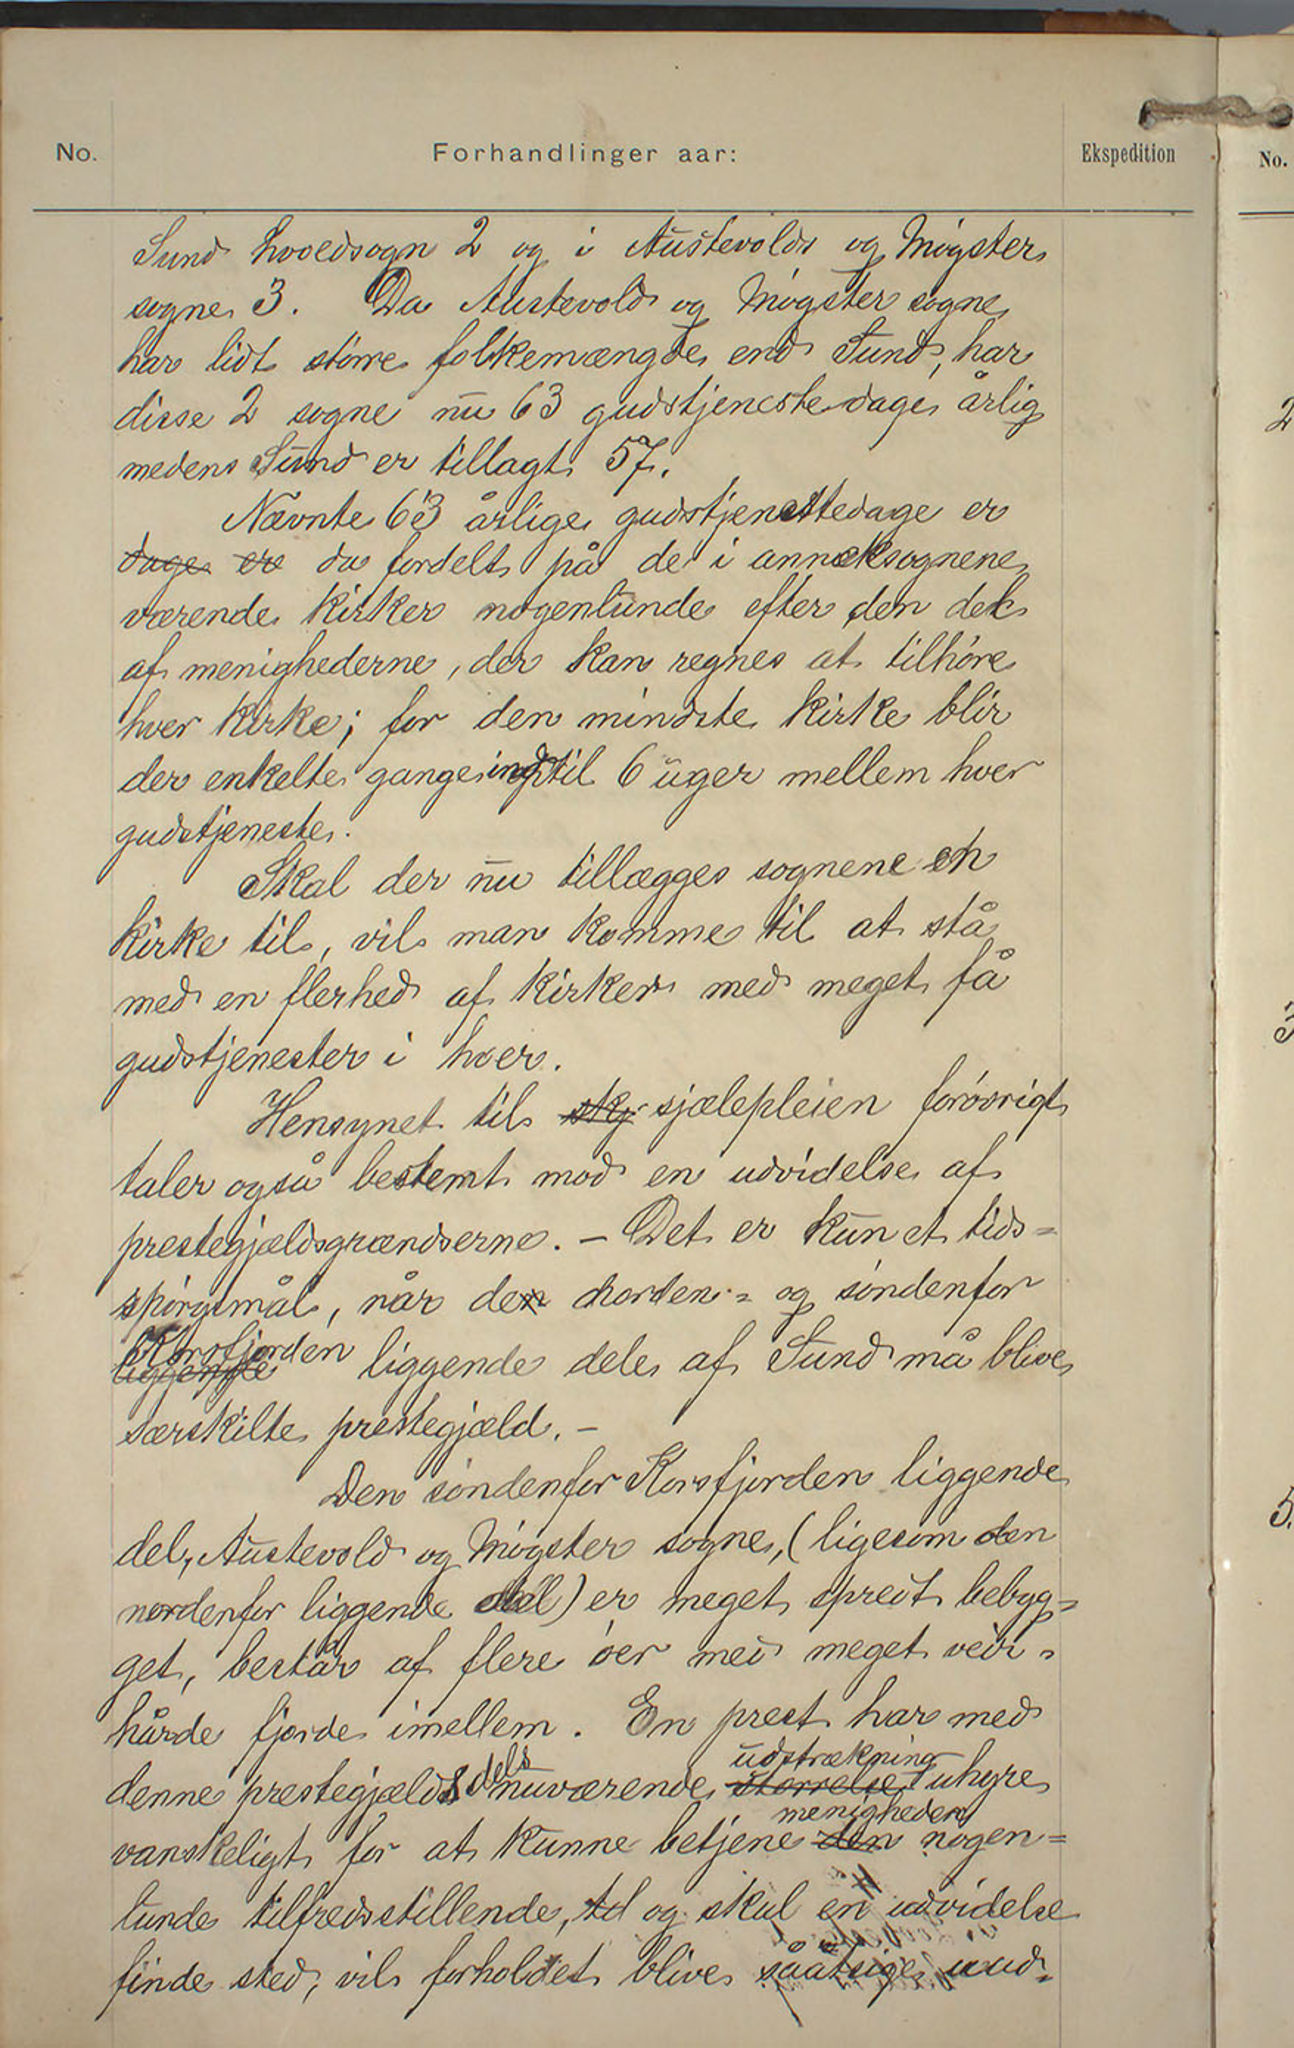 No. Forhandlinger aar: Ekspedition No.
Sund hvoedsogn 2 og i Austevolds og Møgster
sogne 3. Da Austevold og Møgster sogne
har lidt større folkemængde end Sund, har
disse 2 sogne nu 63 gudstjenestedage årlig
medens Sund er tillagt 57.
Nævnte 63 årlige gudstjenestedage er
dage er da fordelt på de i annekssognene
værende kirker nogenlunde efter den del
af menighederne, der kan regnes at tilhøre
hver kirke; for den mindste kirke blir
der enkelte gange indtil 6 uger mellem hver
gudstjeneste.
Skal der nu tillægges sognene en
kirke til, vil man komme til at stå
med en flerhed af kirker med meget få
gudstjenester i hver.
Hensynet til sky sjælepleien forøvrigt
taler også bestemt mod en udvidelse af
prestegjældsgrændserne. – Det er kun et tids=
spørgsmål, når den norden= og søndenfor
Korsfjorden
liggende liggende dele af Sund må blive
særskilte prestegjæld. –
Den søndenfor Korsfjorden liggende
del, Austevold og Møgster sogne, (ligesom den
nordenfor liggende del) er meget spredt bebyg=
get, består af flere øer med meget veir=
hårde fjorde imellem. En prest har med
dels udstrækning
denne prestegjælds nuværende størrelse uhyre
menigheden
vanskeligt for at kunne betjene den nogen=
lunde tilfredsstillende, og skal en udvidelse
finde sted, vil forholdet blive såatsige uud=
2
5.